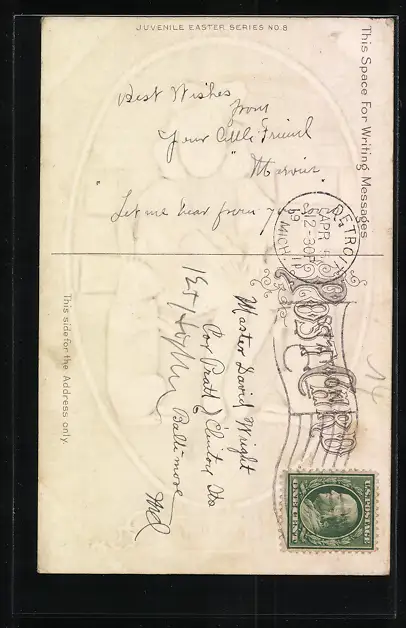 JUVENILE EASTER SERIES NO. 8
This Space For Writing Messages
Best Wishes
from
Your Little Friend
"Marvin"
"Let me hear from you soon"
DETROIT,
APR
12-30P
1911
MICH.
POST CARD
This side for the Address only.
Master David Wright
Cor Pratt & Clinton Sts
Baltimore
Md
U.S. POSTAGE
ONE CENT